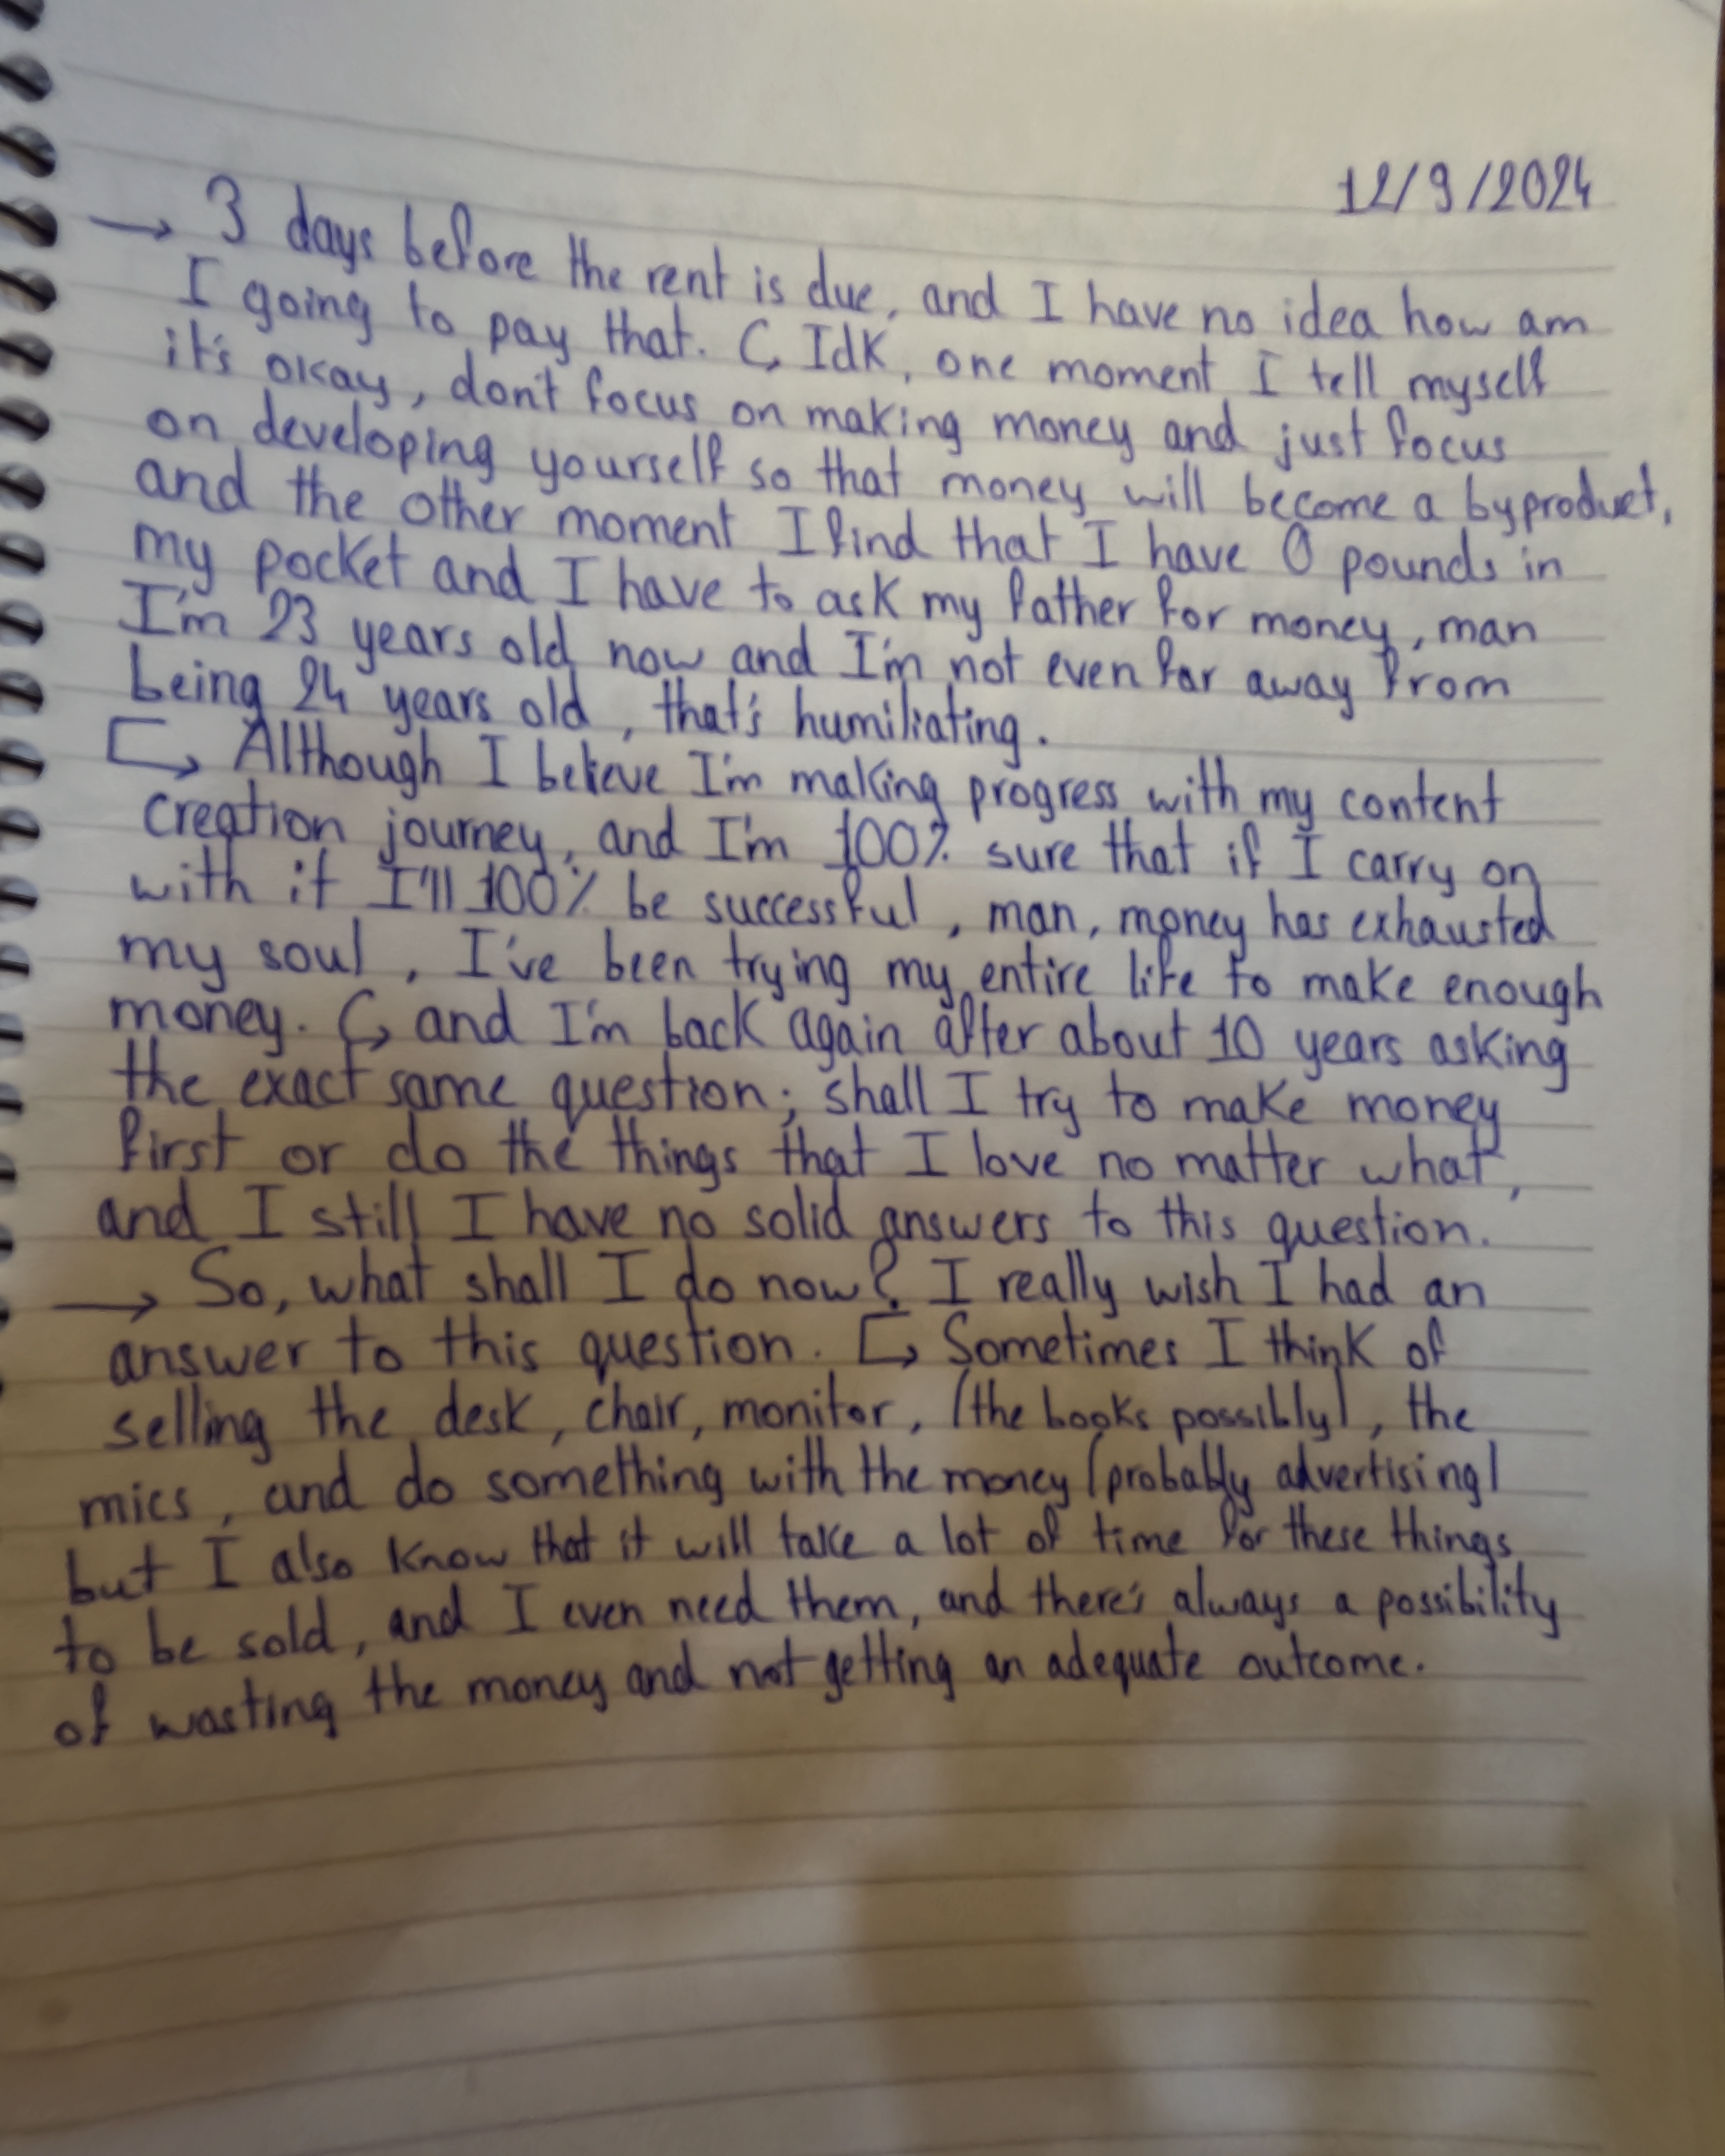 12/9/2024
→ 3 days before the rent is due, and I have no idea how am
I going to pay that. ↳ Idk, one moment I tell myself
it's okay, don't focus on making money and just focus
on developing yourself so that money will become a byproduct,
and the other moment I find that I have 0 pounds in
my pocket and I have to ask my father for money, man
I'm 23 years old now and I'm not even far away from
being 24 years old, that's humiliating.
↳ Although I believe I'm making progress with my content
creation journey, and I'm 100% sure that if I carry on
with it I'll 100% be successful, man, money has exhausted
my soul, I've been trying my entire life to make enough
money. ↳ and I'm back again after about 10 years asking
the exact same question; shall I try to make money
first or do the things that I love no matter what,
and I still I have no solid answers to this question.
→ So, what shall I do now? I really wish I had an
answer to this question. ↳ Sometimes I think of
selling the desk, chair, monitor, (the books possibly), the
mics, and do something with the money (probably advertising)
but I also know that it will take a lot of time for these things
to be sold, and I even need them, and there's always a possibility
of wasting the money and not getting an adequate outcome.